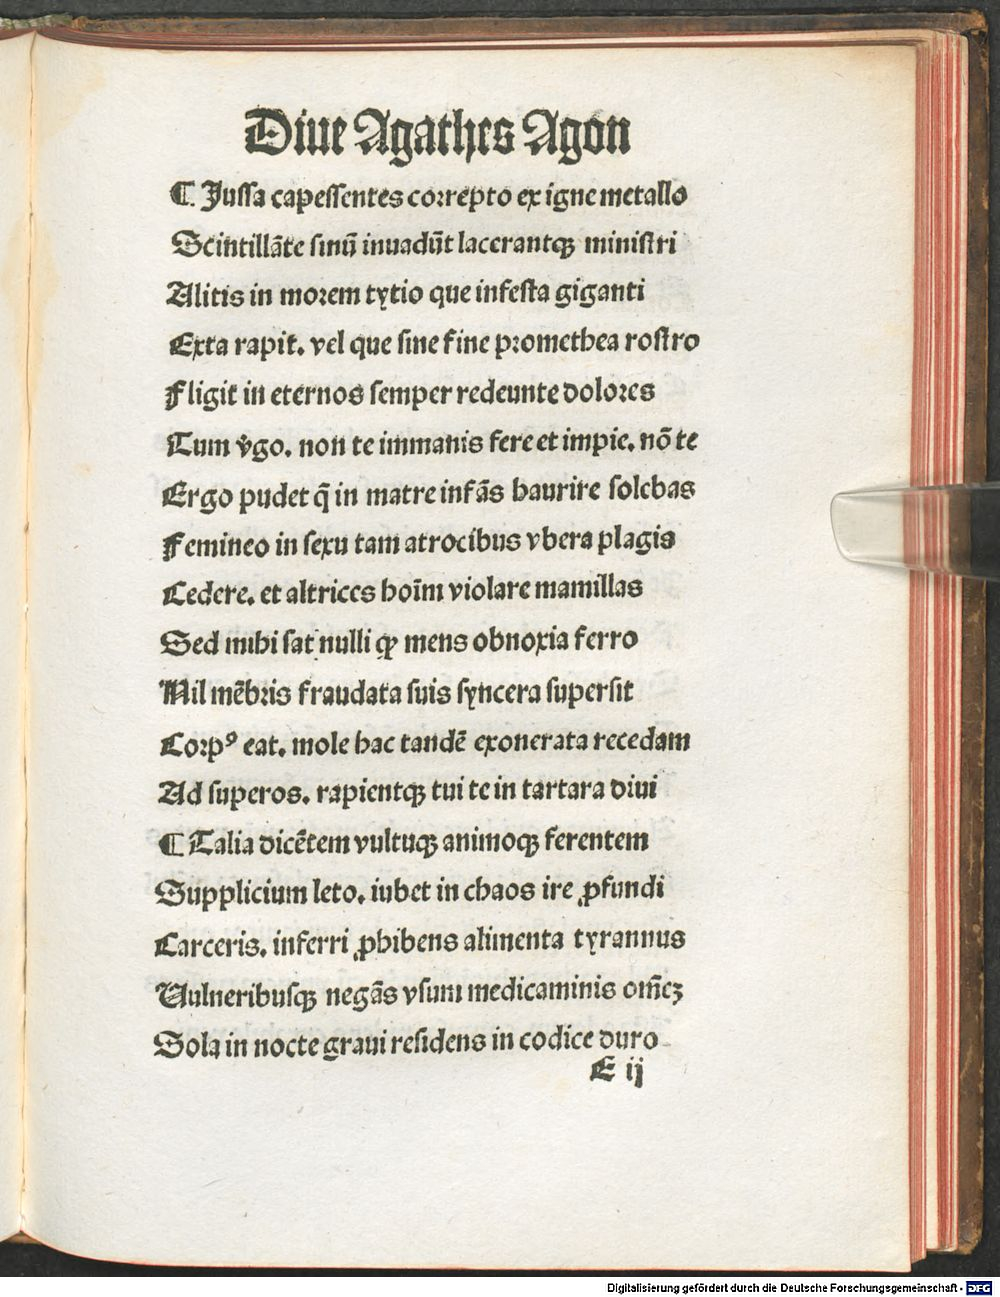 Diue Agathes Agon
¶ Jussa capessentes correpto ex igne metallo
Scintillãte sinũ inuadũt lacerantqꝫ ministri
Alitis in morem tytio que infesta giganti
Exta rapit. vel que sine fine promethea rostro
Fligit in eternos semper redeunte dolores
Tum v̓go. non te immanis fere et impie. nõ te
Ergo pudet q̃ in matre infãs haurire solebas
Femineo in sexu tam atrocibus vbera plagis
Cedere. et altrices hoĩm violare mamillas
Sed mihi sat nulli ꝙ mens obnoxia ferro
Nil mẽbris fraudata suis syncera supersit
Corpꝰ eat. mole hac tandẽ exonerata recedam
Ad superos. rapientqꝫ tui te in tartara diui
¶ Talia dicẽtem vultuqꝫ animoqꝫ ferentem
Supplicium leto. iubet in chaos ire ꝓfundi
Carceris. inferri ꝓhibens alimenta tyrannus
Vulneribusqꝫ negãs vsum medicaminis om̃eꝫ
Sola in nocte graui residens in codice duro
E ij
Digitalisierung gefördert durch die Deutsche Forschungsgemeinschaft - DFG